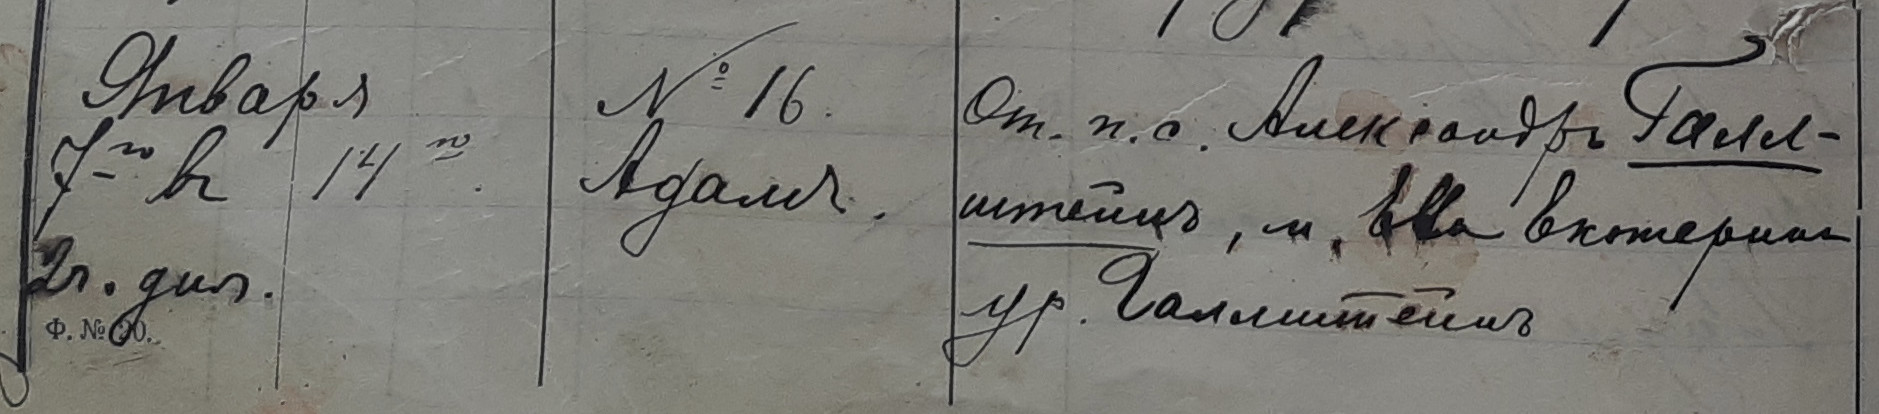 Января
7го въ 14го.
2ч. дня.
Ф. № 20.
№ 16.
Адамъ.
От. п. с. Александръ Галл-
штейнъ, м. Ева Екатерина
ур. Галлштейнъ